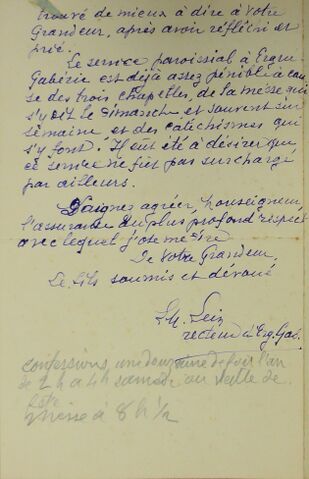 trouvé de mieux à dire à Votre
Grandeur, après avoir réfléchi et
prié.
Le service paroissial à Ergué-
Gabéric est déjà assez pénible à cau
se des trois chapelles, de la messe qui
s'y dit le Dimanche et souvent sur
semaine, et des catéchismes qui
s'y font. Il eut été à désirer que
ce service ne fut pas surchargé
par ailleurs.
Daignez agréer, Monseigneur,
l'assurance du plus profond respect
avec lequel j'ose me dire
de Votre Grandeur,
Le fils soumis et dévoué
recteur d'Erg. Gab.
confessions, une douzaine de fois l'an
de 2 h à 4 h samedi ou veille de
fête
Messe à 8 h 1/2